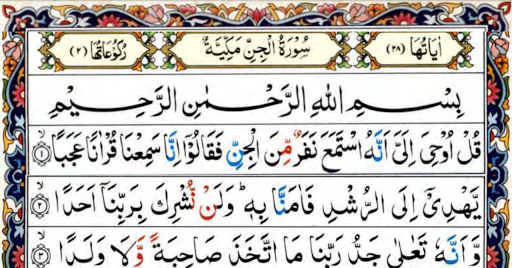 اٰیَاتُهَا (۲۸) سُوْرَةُ الْجِنِّ مَكِّیَّةٌ رُكُوْعَاتُهَا (۲)
بِسْمِ اللّٰهِ الرَّحْمٰنِ الرَّحِیْمِ
قُلْ اُوْحِیَ اِلَیَّ اَنَّهُ اسْتَمَعَ نَفَرٌ مِّنَ الْجِنِّ فَقَالُوْۤا اِنَّا سَمِعْنَا قُرْاٰنًا عَجَبًا ۙ﴿۱﴾
یَّهْدِیْۤ اِلَی الرُّشْدِ فَاٰمَنَّا بِهٖ ؕ وَلَنْ نُّشْرِكَ بِرَبِّنَاۤ اَحَدًا ۙ﴿۲﴾
وَّاَنَّهٗ تَعٰلٰی جَدُّ رَبِّنَا مَا اتَّخَذَ صَاحِبَةً وَّلَا وَلَدًا ۙ﴿۳﴾